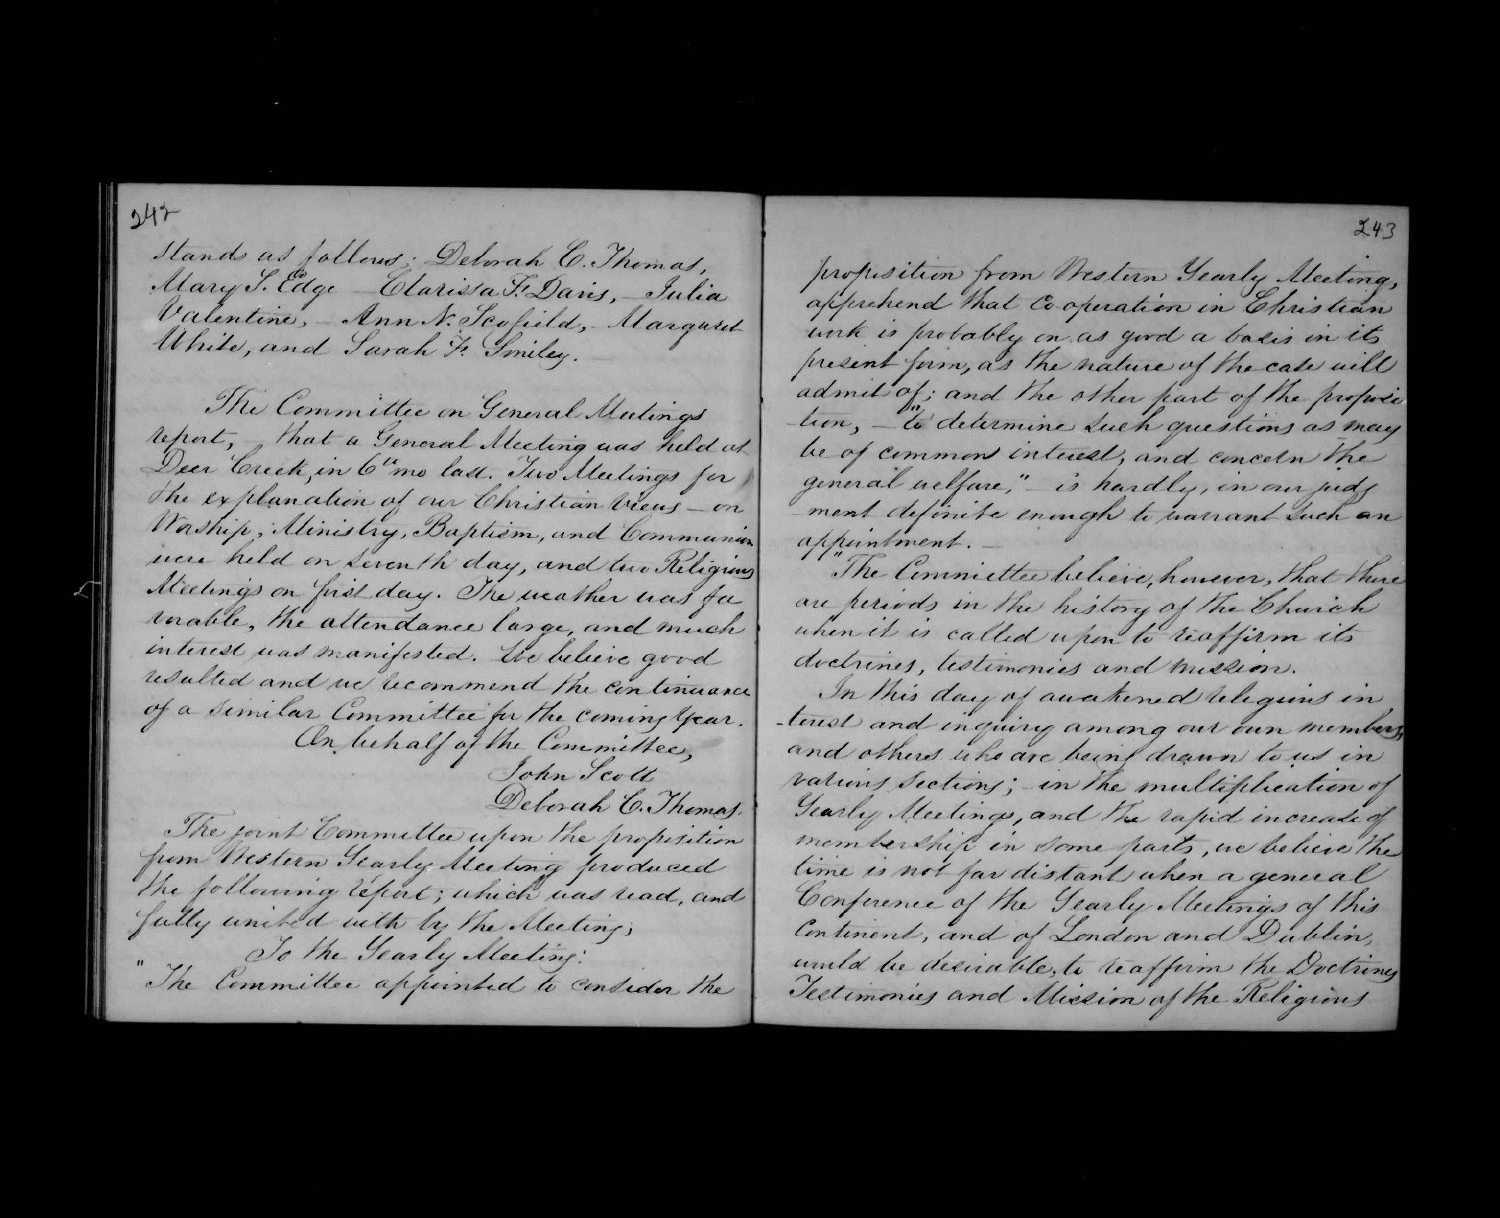 242
stands as follows: Deborah C. Thomas,
Mary S. Edge – Clarissa F. Davis, – Julia
Valentine, – Ann N. Scofield, – Margaret
White, and Sarah F. Smiley.
The Committee on General Meetings
report, – that a General Meeting was held at
Deer Creek, in 6th mo last. Two Meetings for
the explanation of our Christian views – on
Worship, Ministry, Baptism, and Communion
were held on seventh day, and two Religious
Meetings on first day. The weather was fa
vorable, the attendance large, and much
interest was manifested. We believe good
resulted and we recommend the continuance
of a similar Committee for the coming Year.
On behalf of the Committee,
John Scott
Deborah C. Thomas.
The joint Committee upon the proposition
from Western Yearly Meeting produced
the following report; which was read, and
fully united with by the Meeting;
To the Yearly Meeting:
"The Committee appointed to consider the
243
proposition from Western Yearly Meeting,
apprehend that Co-operation in Christian
work is probably on as good a basis in its
present form, as the nature of the case will
admit of; and the other part of the proposi
-tion, – "to determine such questions as may
be of common interest, and concern the
general welfare," – is hardly, in our judg
-ment definite enough to warrant such an
appointment. –
"The Committee believe, however, that there
are periods in the history of the Church
when it is called upon to reaffirm its
doctrines, testimonies and mission.
In this day of awakened religious in
-terest and inquiry among our own members,
and others who are being drawn to us in
various sections; – in the multiplication of
Yearly Meetings, and the rapid increase of
membership in some parts, we believe the
time is not far distant when a general
Conference of the Yearly Meetings of this
Continent, and of London and Dublin,
would be desirable, to reaffirm the Doctrines
Testimonies and Mission of the Religious